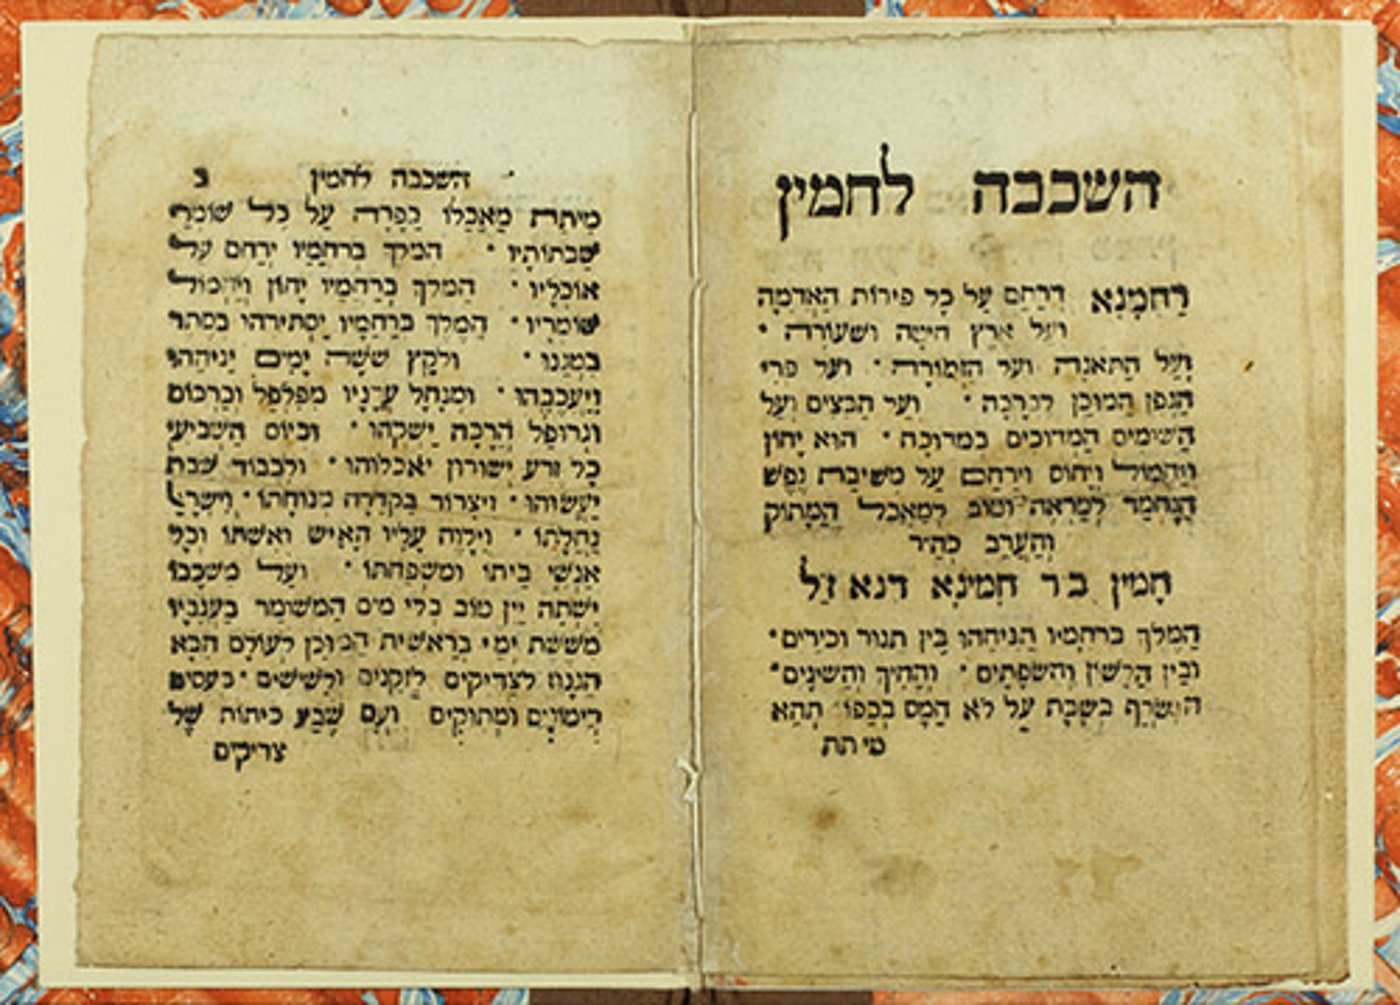 השכבה לחמין
רַחְמָנָא דִּרַחֵם עַל כָּל פירות הָאֲדָמָה
ועל אֶרֶץ חִיטָּה וּשְׂעוֹרָה •
וְעַל הַתְּאֵנָה ועל הַזְּמוֹרָה • ועל פְּרִי
הַגֶּפֶן הַמּוּכָן לִבְרָכָה • ועל הַבֵּצִים וְעַל
הַשּׁוּמִים הַמְּדוּכִים בִּמְדוּכָה • הוּא יָחוֹן
וְיַחֲמוֹל וְיָחוֹס וִירַחֵם עַל מְשִׁיבַת נֶפֶשׁ
הַנֶּחְמָד לְמַרְאֶה וטוֹב לְמַאֲכָל הַמָּתוֹק
וְהֶעָרֵב כְּהַ״ר
חָמִין בַּר חֲמִינָא דנא זַ״ל
הַמֶּלֶךְ בְּרַחֲמָיו הַנִּיחֵהוּ בֵּין תנור וכירים •
וּבֵין הַלָּשׁוֹן וְהַשְּׂפָתַיִם • וְהַחֵיךְ וְהַשִּׁינַּיִם •
הנשׂרף בְּשַׁבָּת עַל לֹא חָמָס בְּכַפּוֹ תְּהֵא
מיתת
השכבה לחמין ב
מִיתַת מַאֲכָלוֹ כַּפָּרָה עַל כל שׁוֹמְרֵי
שַׁבְּתוֹתָיו • המלך בְּרַחֲמָיו יְרַחֵם על
אוֹכְלָיו • הַמֶּלֶךְ בְּרַחֲמָיו יָחוֹן וְיַחְמוֹל
שׁוֹמְרָיו • הַמֶּלֶךְ בְּרַחֲמָיו יַסְתִּירֵהוּ בְּסֵתֶר
וּלְקֵץ שִׁשָּׁה יָמִים יַנִיחֵהוּ
וִיעַכְּבֵהוּ • וּמִנַּחַל עֲדָנָיו מִפִּלְפֵּל וְכַרְכּוֹם
הֲרַבָּה יַשְׁקֵהוּ • וביום הַשְּׁבִיעִי
כָּל זֶרַע יְשׁוּרוּן יֹאכְלוּהוּ • וְלִכְבוֹד שַׁבָּת
יַעֲשׂוּהוּ • וְיִצְרוֹר בִּקְדֵרָה מְנוּחָתוֹ • וְיִשְׂרָאֵל
נַחֲלָתוֹ • וְיִלָּוֶה עָלָיו הָאִישׁ וְאִשְׁתּוֹ וְכָל
אַנְשֵׁי בֵיתוֹ וּמִשְׁפַּחְתּוֹ • וְעַל מִשְׁכָּבוֹ
יִשְׁתֶּה יַיִן טוֹב בְּלִי מים הַמְשׁוּמָּר בַּעֲנָבָיו
מִשֵּׁשֶׁת יְמֵי בְּרֵאשִׁית הַמּוּכָן לְעוֹלָם הַבָּא
הַגָּנוּז לַצַּדִּיקִים לַזְּקֵנִים וְלַיְשִׁישִׁים • כַּעֲסִיס
רִימוֹנִים וּמְתוּקִים וְעִם שֶׁבַע כיתות שֶׁל
צדיקים